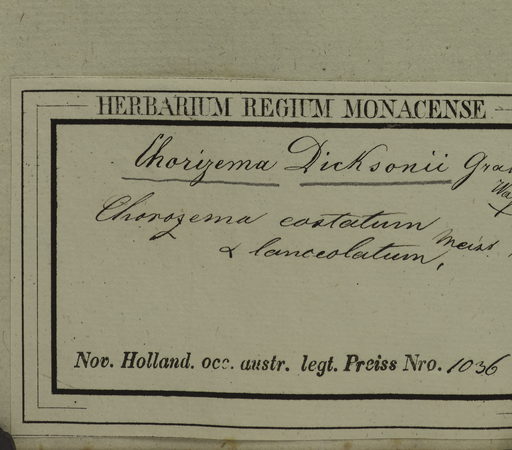 HERBARIUM REGIUM MONACENSE
Chorizema Dicksonii Gra
Chorozema costatum
α lanceolatum, Meiss.
Nov. Holland. occ. austr. legt. Preiss Nro. 1036